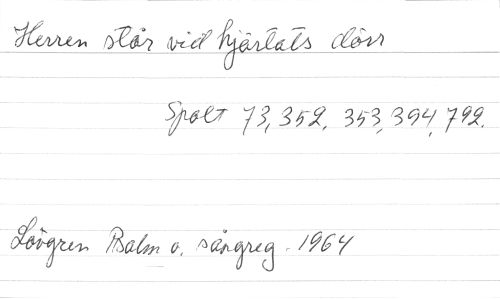 Herren står vid hjärtats dörr
Spalt 73, 352, 353, 394, 792.
Lövgren Psalm o. sångreg. 1964